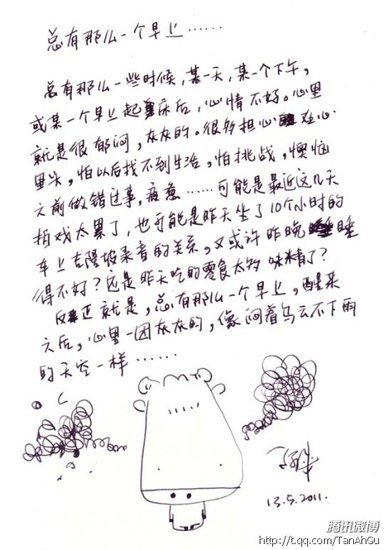 总有那么一个早上……
总有那么一些时候，某一天，某一个下午，
或某一个早上起床后，心情不好。心里
就是很郁闷，灰灰的。很多担心在心
里头，怕以后找不到生活，怕挑战，懊恼
之前做错过事，疲惫……可能是最近这几天
拍戏太累了，也可能是昨天坐了10个小时的
车上吉隆坡来的关系，又或许昨晚睡
得不好？还是昨天吃的零食太多味精了？
反正就是，总有那么一个早上，醒来
之后，心里一团灰灰的，像闷着乌云不下雨
的天空一样……
13.5.2011.
腾讯微博
http://t.qq.com/TanAhGu